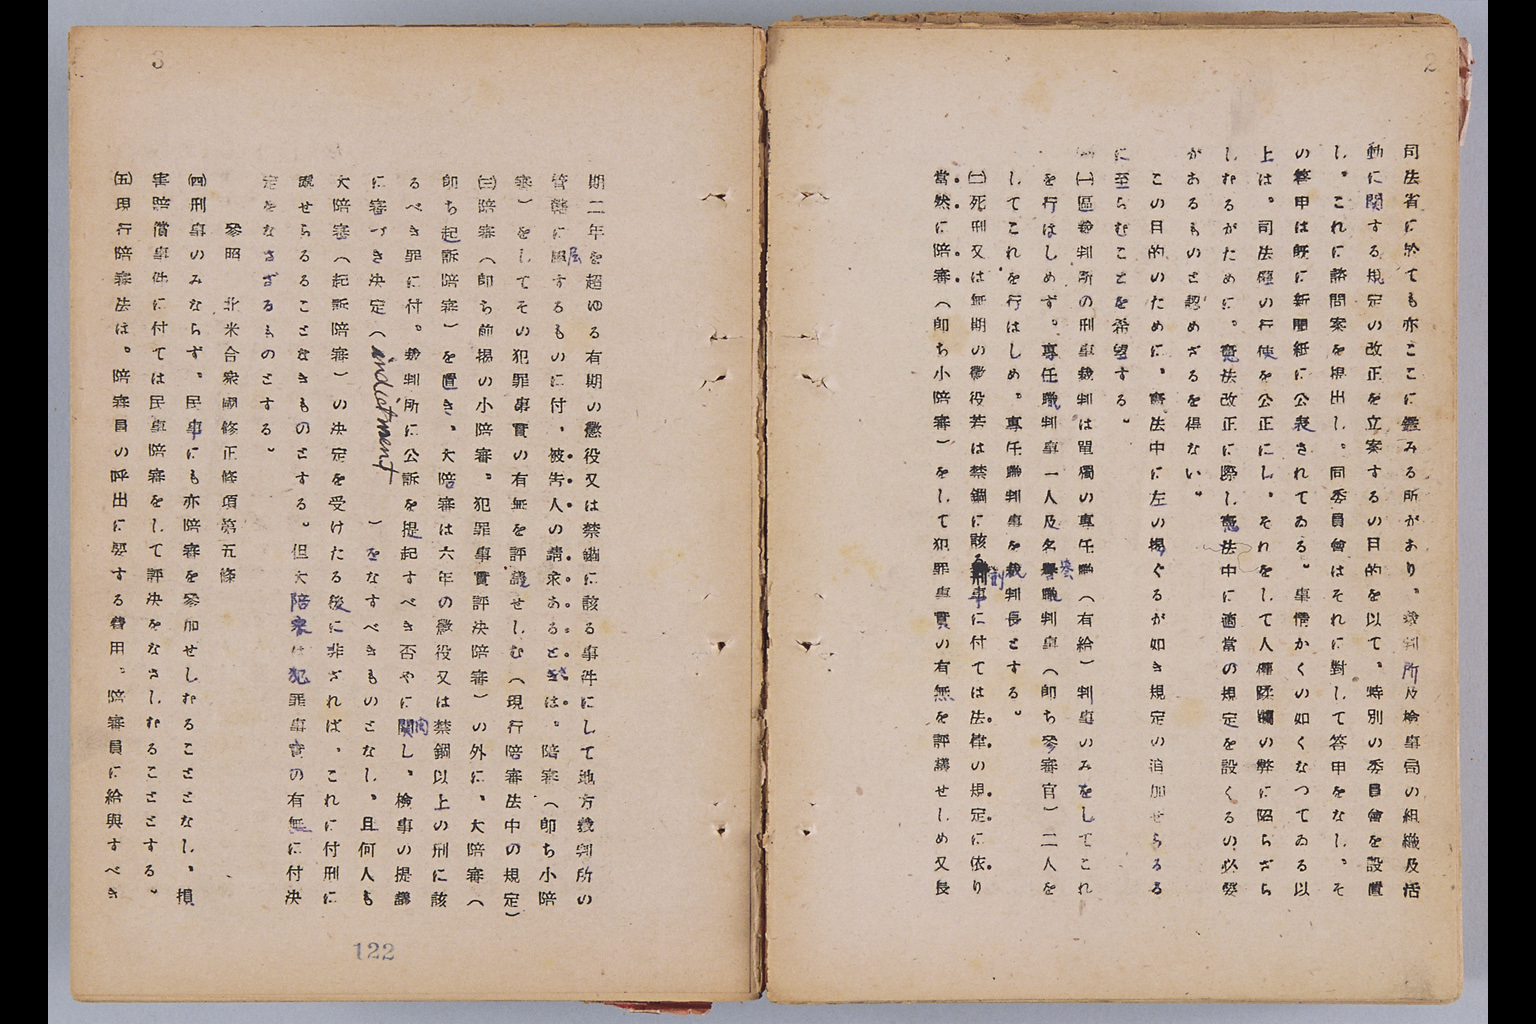 2
司法省に於ても亦ここに鑑みる所があり。裁判所及檢事局の組織及活
動に関する規定の改正を立案するの目的を以て。特別の委員會を設置
し。これに諮問案を提出し。同委員會はそれに對して答申をなし。そ
の答申は既に新聞紙に公表されてゐる。事情かくの如くなつてゐる以
上は。司法權の行使を公正にし。それをして人權蹂躙の弊に陷らざら
しむるがために。憲法改正に際し憲法中に適當の規定を設くるの必要
があるものと認めざるを得ない。
この目的のために。憲法中に左の掲ぐるが如き規定の追加せらるる
に至らむことを希望する。
㈠區裁判所の刑事裁判は單獨の專任職(有給)判事のみをしてこれ
を行はしめず。專任職判事一人及名譽職判事(卽ち參審官)二人を
してこれを行はしめ。專任職判事を裁判長とする。
㈡死刑又は無期の懲役若は禁錮に該る刑事に付ては法律の規定に依り
當然に陪審(卽ち小陪審)をして犯罪事實の有無を評議せしめ又長
3
期二年を超ゆる有期の懲役又は禁錮に該る事件にして地方裁判所の
管轄に屬するものに付。被吿人の請求あるときは。陪審(卽ち小陪
審)をしてその犯罪事實の有無を評議せしむ(現行陪審法中の規定)
㈢陪審(卽ち前掲の小陪審。犯罪事實評決陪審)の外に。大陪審(
卽ち起訴陪審)を置き。大陪審は六年の懲役又は禁錮以上の刑に該
るべき罪に付。裁判所に公訴を提起すべき否やに關し。檢事の提議
に審づき決定(indictment)をなすべきものとなし。且何人も
大陪審(起訴陪審)の決定を受けたる後に非ざれば。これに付刑に
處せらるることなきものとする。但大陪衆は犯罪事實の有無に付決
定をなさざるものとする。
參照 北米合衆國修正條項第五條
㈣刑事のみならず。民事にも亦陪審を參加せしむることとなし。損
害賠償事件に付ては民事陪審をして評決をなさしむることとする。
㈤現行陪審法は。陪審員の呼出に要する費用。陪審員に給與すべき
122